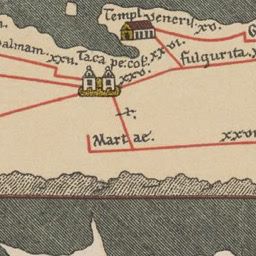 Templ. veneris. xv.
palmam. xxv. Tacape. col. xxvi. fulgurita. xx
xxv.
x.
Martae. xxv